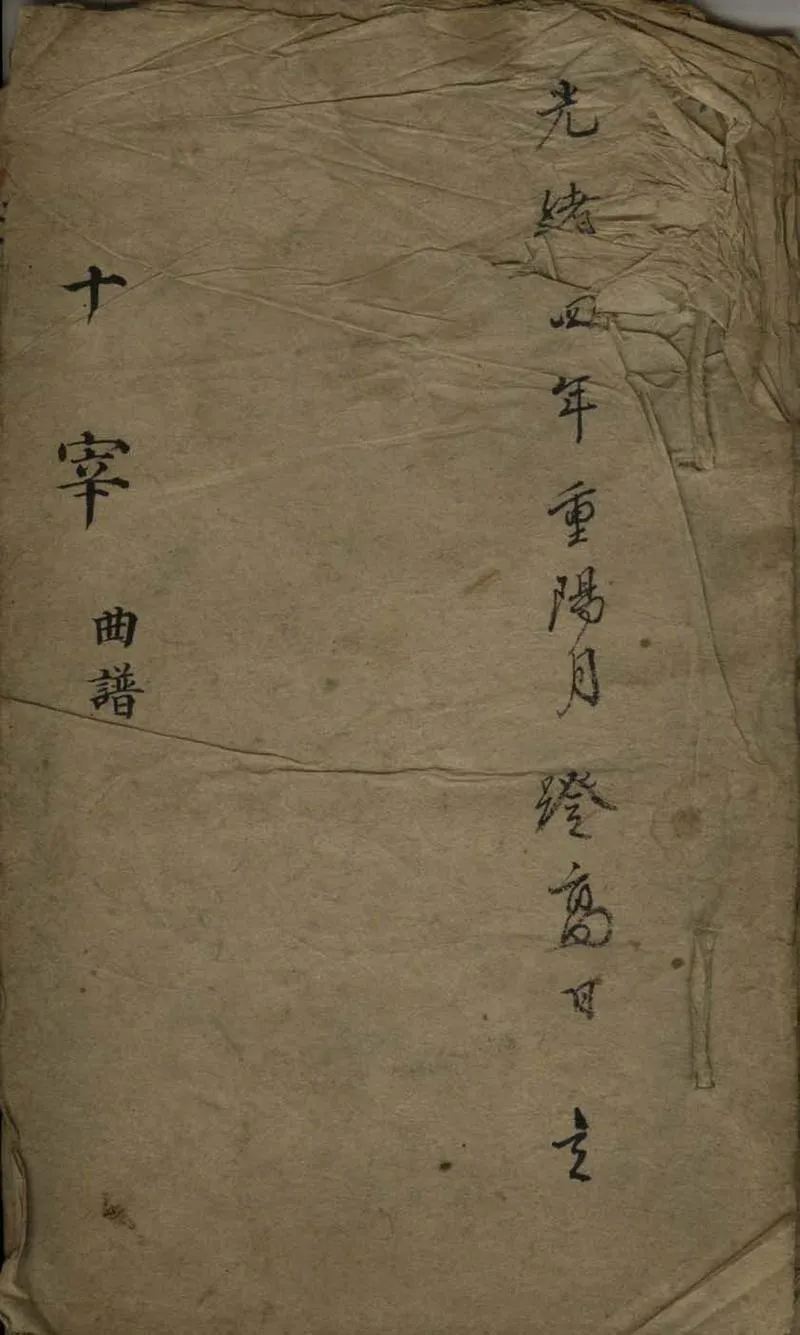 光緒四年重陽月蹬高日 立
十宰 曲譜